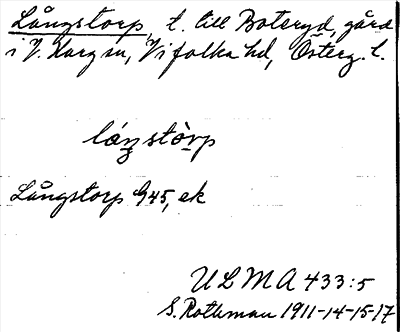 Långstorp, t. till Boteryd, gård
i V. Harg sn, Vifolka hd, Österg. l.
láŋstòrp
Långstorp G45, ek
ULMA 433:5
S. Rothman 1911-14-15-17